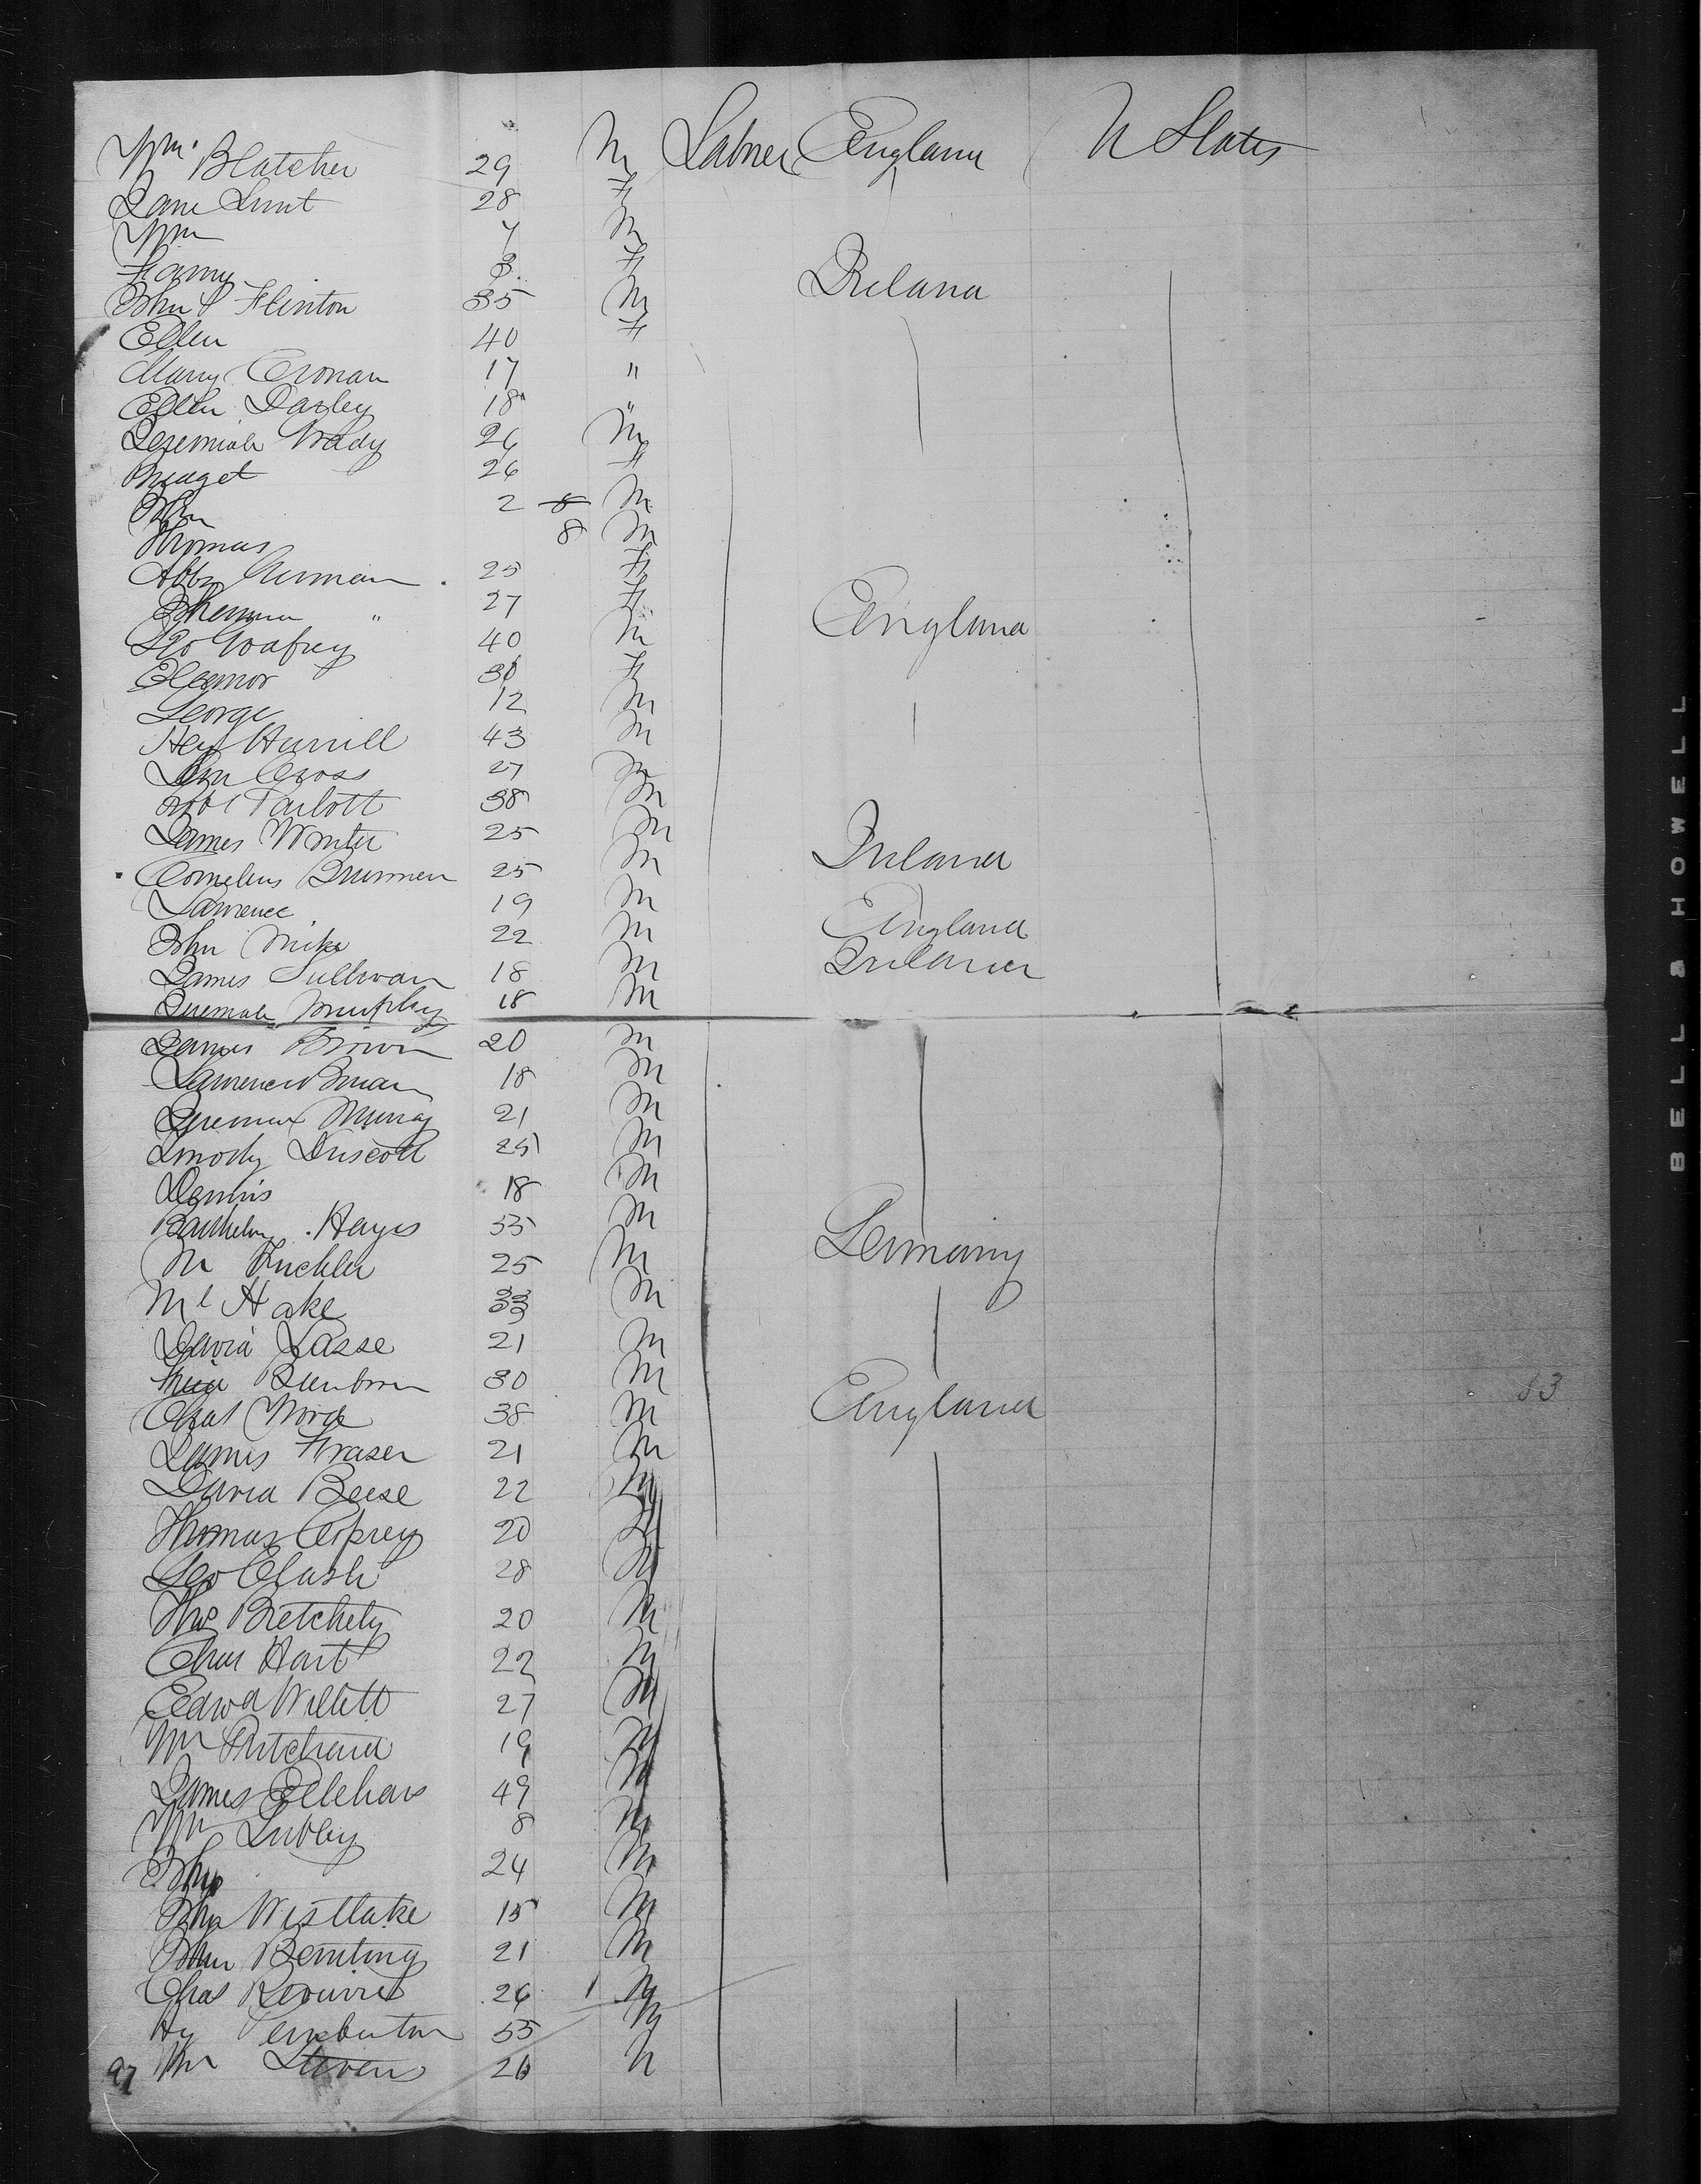 Wm Blatcher 29 M Labrer England U States
Jane Lunt 28 F
Wm 7 M
Fanny 3 F
John S Flinton 35 M Ireland
Ellen 40 F
Mary Cronan 17 "
Ellen Dasley 18 "
Jeremiah Brady 26 M
Bridget 26 F
John 2 M
Thomas 8 M
Abby 25 F
" 27 F
Geo Godfrey 40 M England
Eleanor 30 F
George 12 M
Hey Hurrell 43 M
John Cross 27 M
Tarlott 38 M
James Winter 25 M
Cornelius Brusnnen 25 M Ireland
Lawrence 19 M
John Mike 22 M England
James Sullivan 18 M Ireland
Jeremiah Murphy 18 M
James Brown 20 M
Lawrence 18 M
Jeremiah Murray 21 M
Timothy Driscoll 25 M
Dennis 18 M
Barthelmy Hayes 35 M
M Kuchler 25 M Germany
Ml Hake 33 M
David Lasse 21 M
30 M
Chas Ward 38 M England
James Fraser 21 M
David Beese 22 M
Thomas Cosprey 20 M
Geo Clash 28 M
Thos Bretchely 20 M
Chas Hart 22 M
Edwd Willett 27 M
Wm Pritchard 19 M
James 49 M
Wm Lubley 8 M
John 24 M
John Westlake 15 M
John Bernting 21 M
Chas 26 1 M
Hy Pemberton 55 M
97 Wm Stevens 26 M
53
BELL & HOWELL